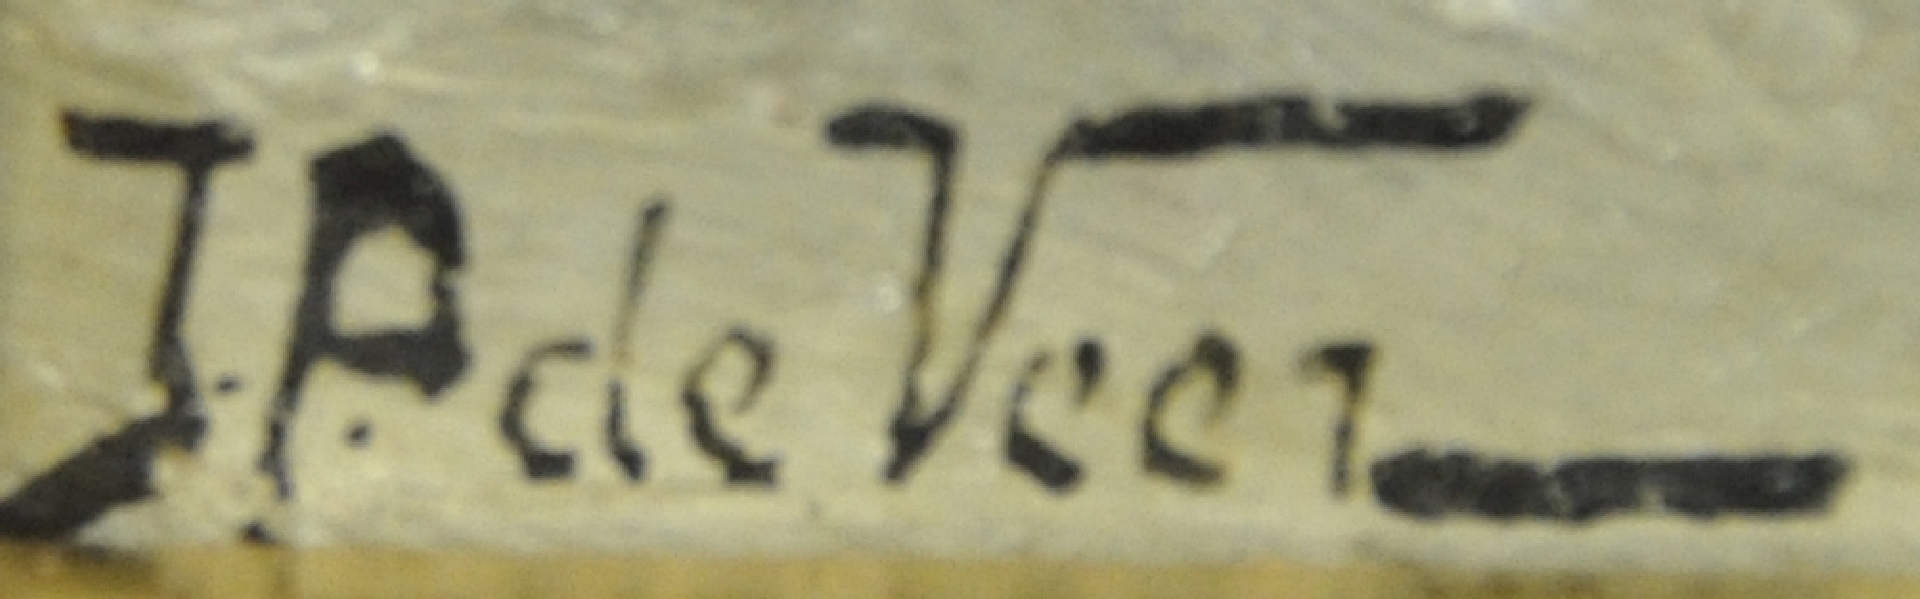 J.P. de Veer